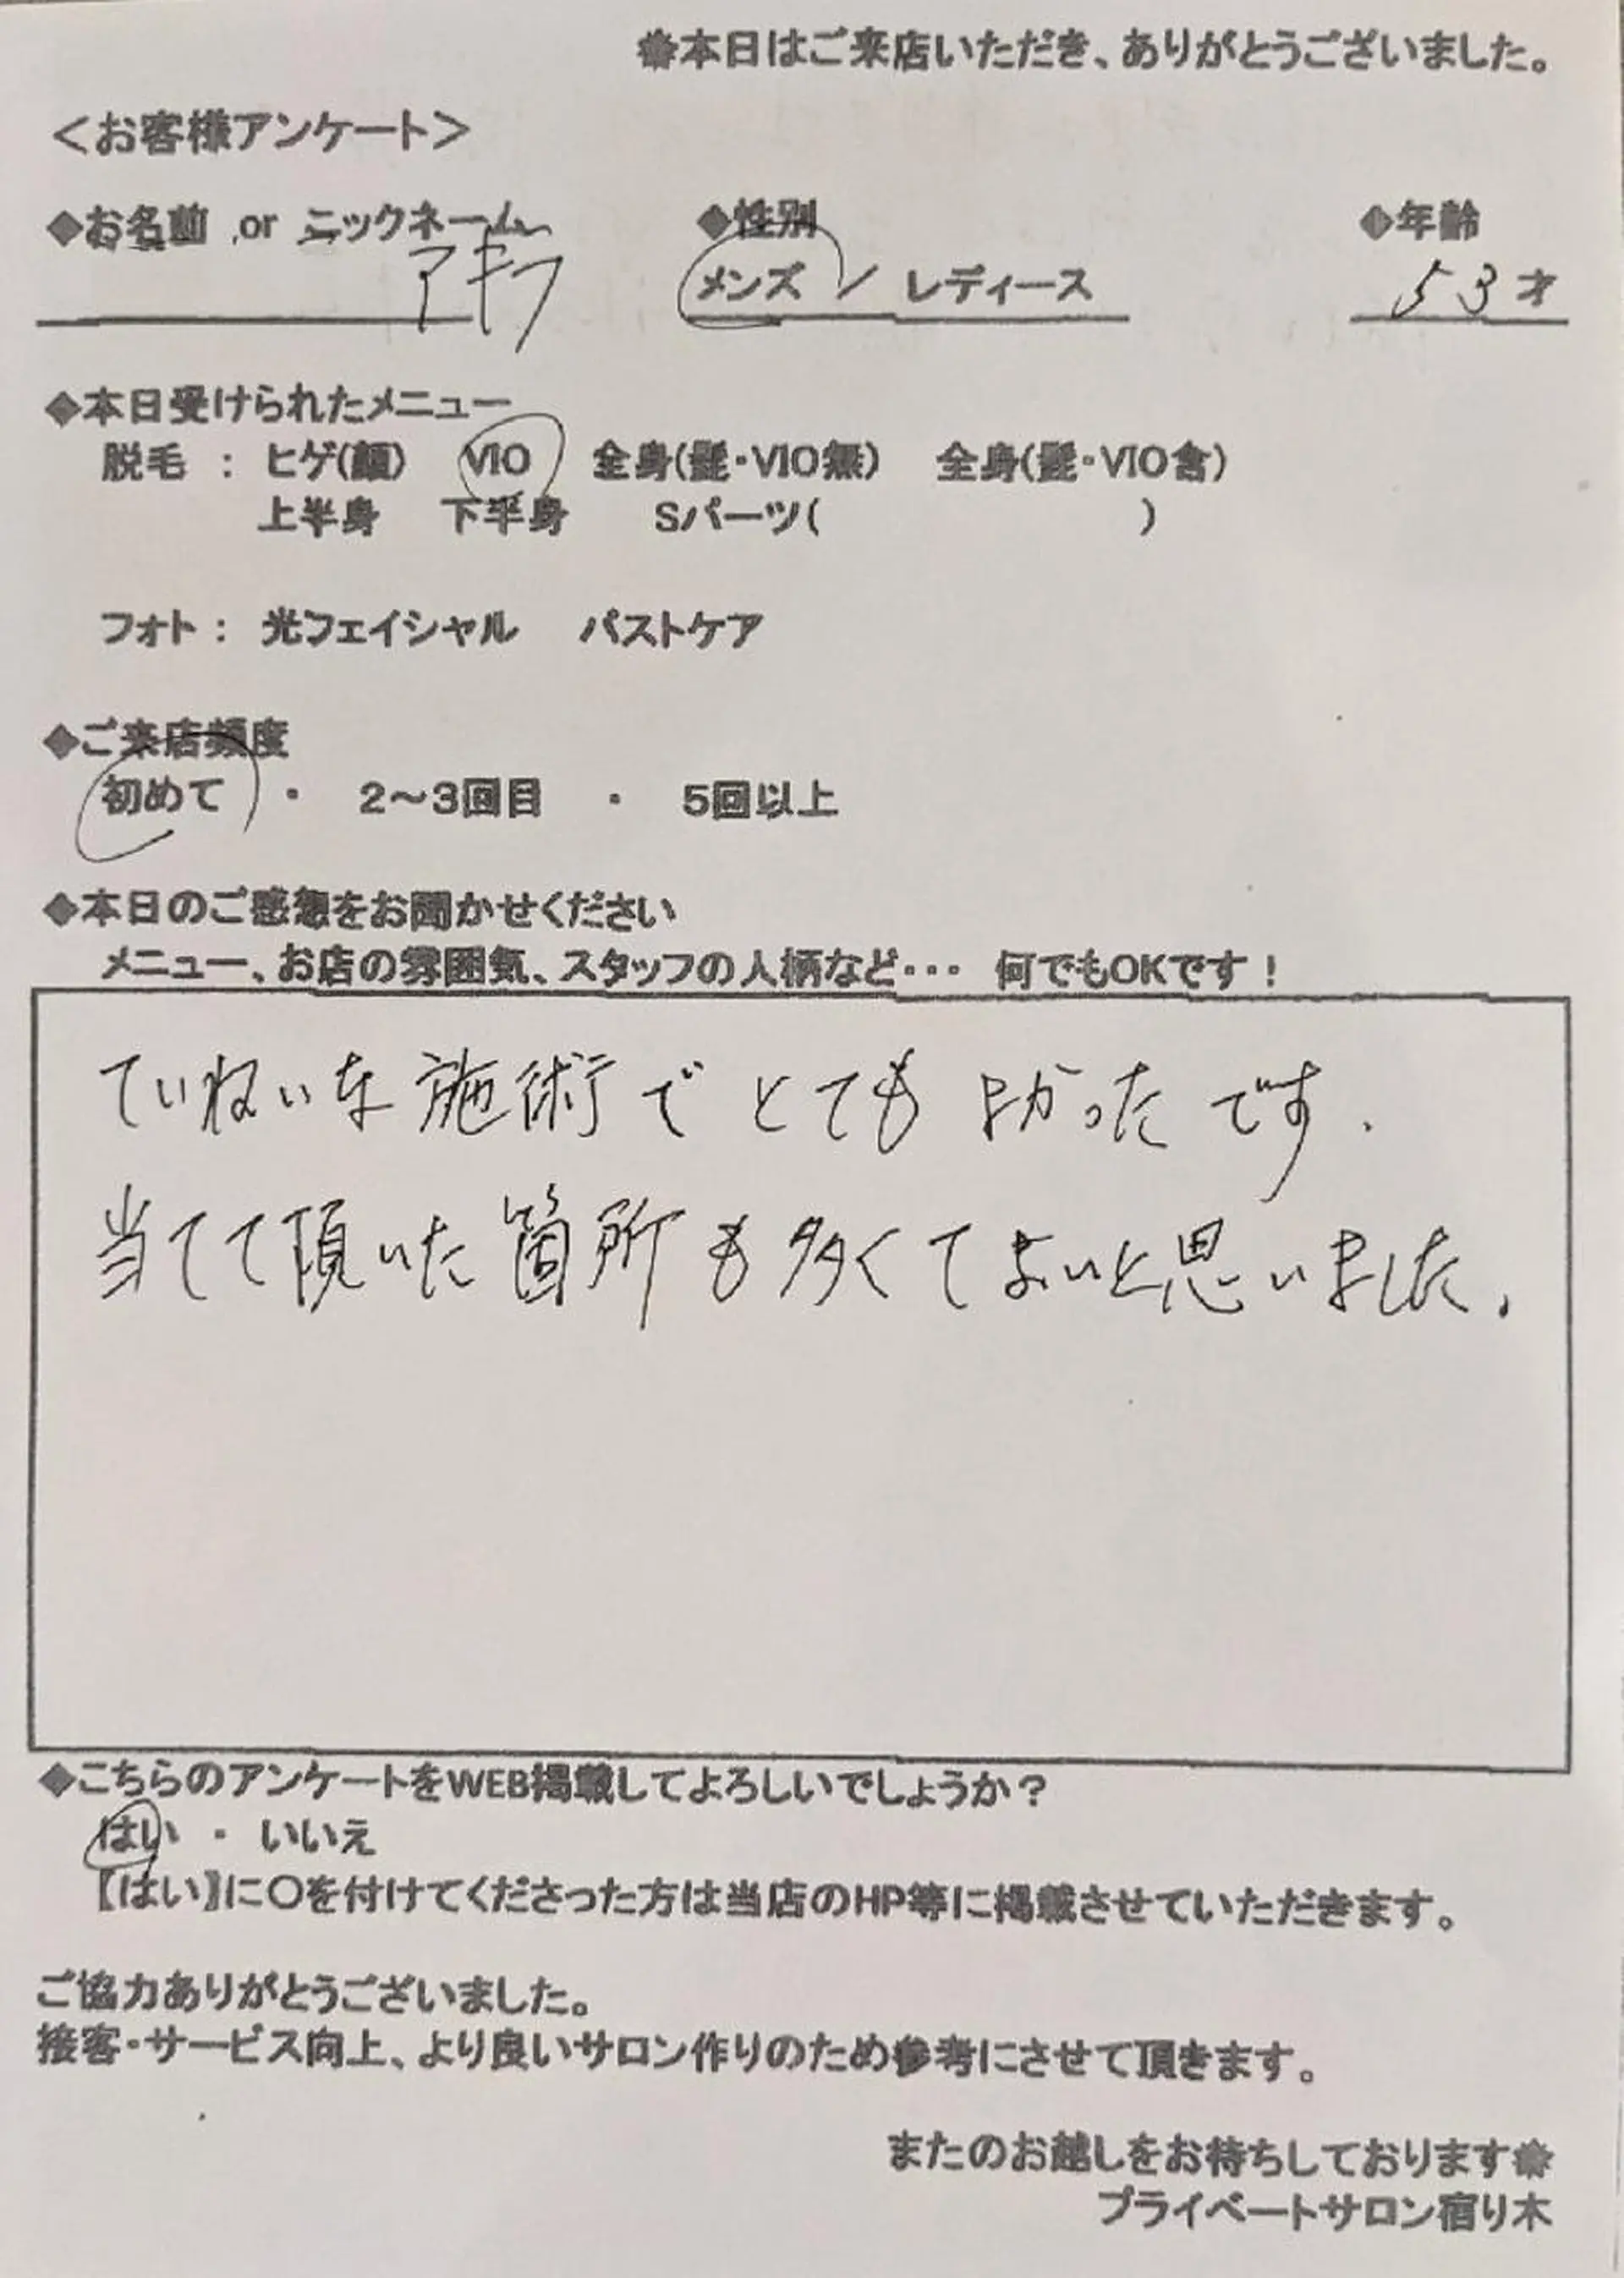 ❃本日はご来店いただき、ありがとうございました。
＜お客様アンケート＞
◆お名前 or ニックネーム ◆性別 ◆年齢
アキラ メンズ / レディース 53才
◆本日受けられたメニュー
脱毛 : ヒゲ(顔) VIO 全身(髭・VIO無) 全身(髭・VIO含)
上半身 下半身 Sパーツ( )
フォト : 光フェイシャル バストケア
◆ご来店頻度
初めて ・ 2～3回目 ・ 5回以上
◆本日のご感想をお聞かせください
メニュー、お店の雰囲気、スタッフの人柄など・・・ 何でもOKです!
ていねいな施術でとてもよかったです.
当てて頂いた箇所も多くてよいと思いました.
◆こちらのアンケートをWEB掲載してよろしいでしょうか?
はい ・ いいえ
【はい】に〇を付けてくださった方は当店のHP等に掲載させていただきます。
ご協力ありがとうございました。
接客・サービス向上、より良いサロン作りのため参考にさせて頂きます。
またのお越しをお待ちしております❃
プライベートサロン宿り木